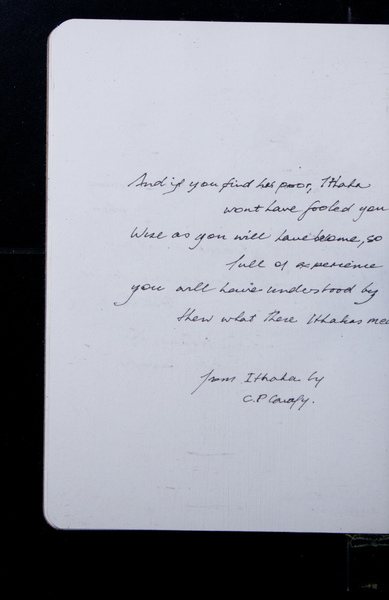 And if you find her poor, Ithaka
wont have fooled you
Wise as you will have become, so
full of experience
you will have understood by
then what these Ithakas mea
from Ithaka by
C.P Cavafy.